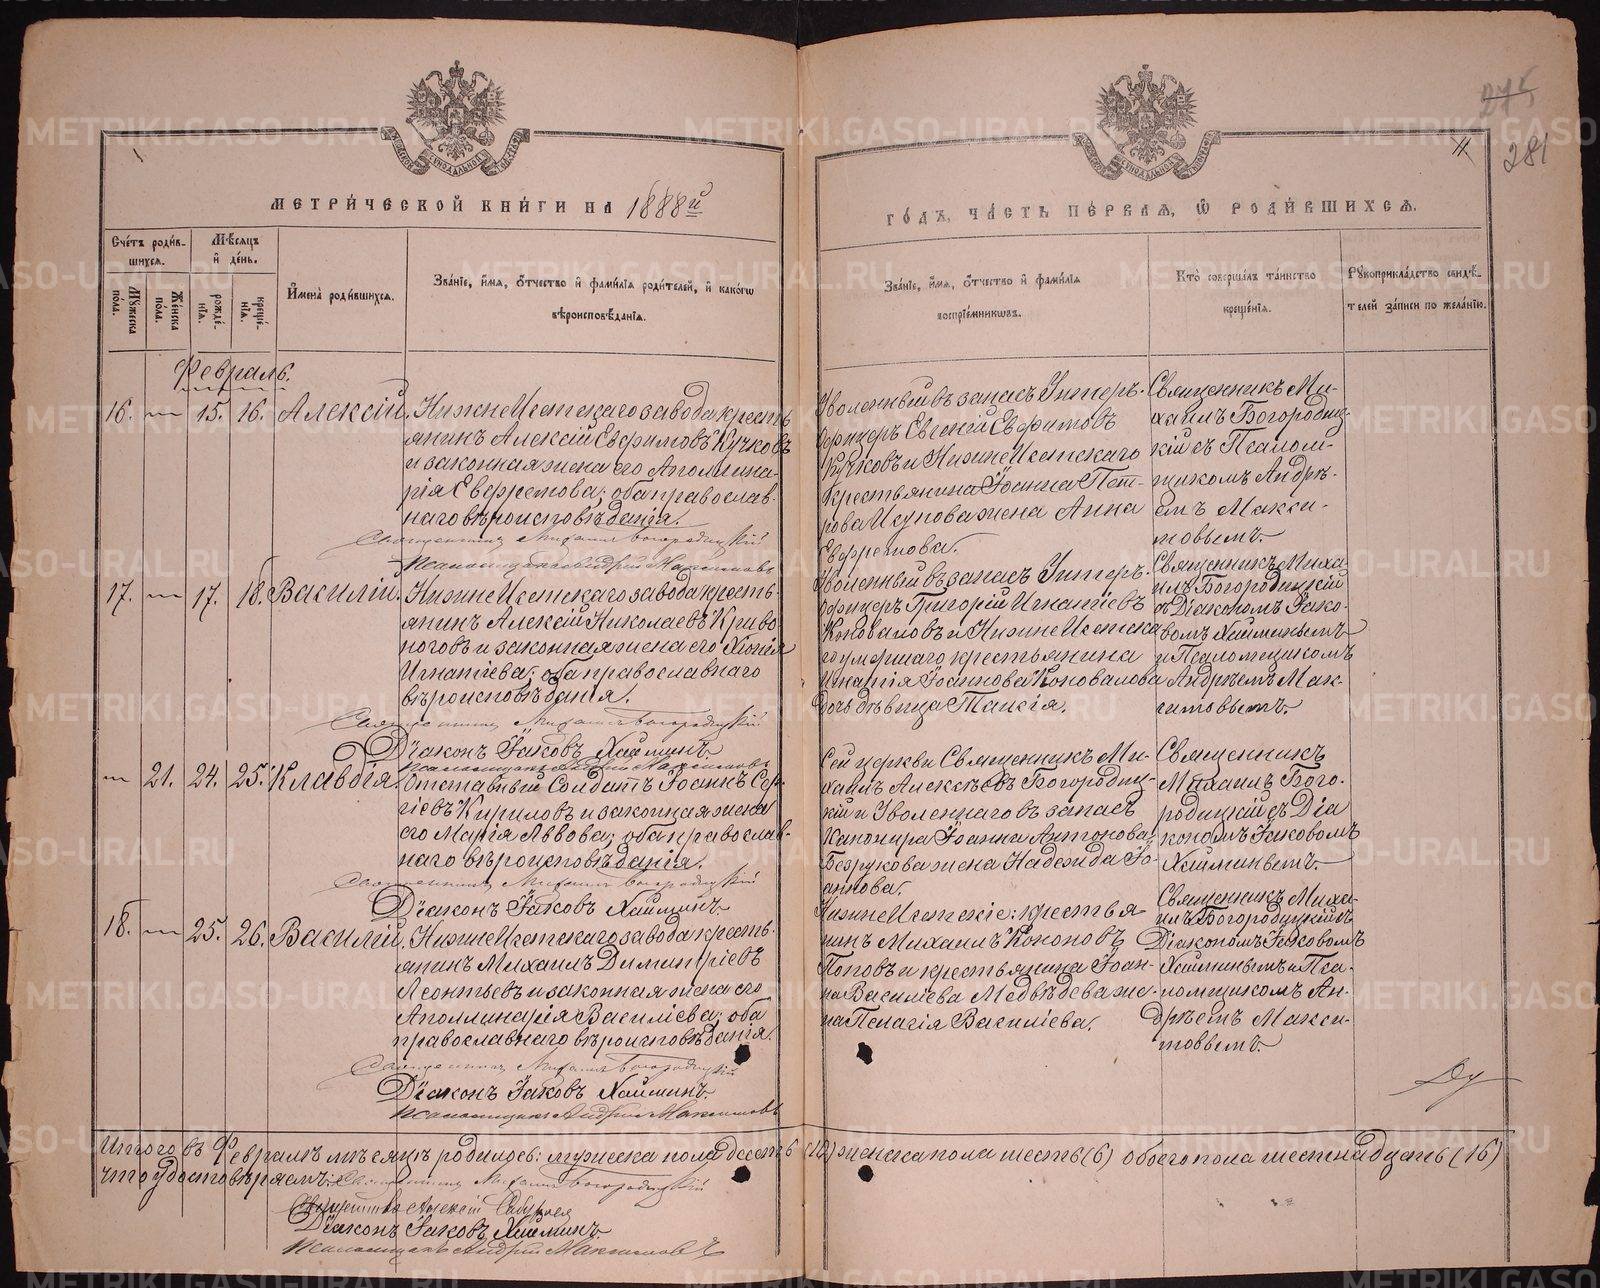 МЕТРИ́ЧЕСКОЙ КНИ́ГИ НА 1888й
ГО́ДЪ, ЧА́СТЬ ПЕ́РВАЯ, Ѡ РОДИ́ВШИХСЯ.
11
275
281
Сче́тъ роди́в-
шихся.
Мꙋ́жеска по́ла.
Же́нска по́ла.
Мѣ́сяцъ
и҆ де́нь.
рожде́-
нія.
креще́-
нія.
И҆мена̀ роди́вшихся.
Зва́ніе, и҆́мя, ѻ҆́тчество и҆ фами́лія роди́телей, и҆ како́гѡ
вѣроисповѣ́данія.
Зва́ніе, и҆́мя, ѻ҆́тчество и҆ фами́лія
воспріе́мниковъ.
Кто̀ соверша́лъ та́инство
креще́нія.
Рꙋкоприкла́дство свидѣ́-
телей за́писи по жела́нію.
Февраль.
16. — 15. 16. Алексій.
Нижнеисетскаго завода кресть
янинъ Алексій Евфимовъ Кучковъ
и законная жена его Аполлина-
рія Евфремова; оба православ-
наго вѣроисповѣданія.
Священникъ Михаилъ Богородицкій
Псаломщикъ Андрей Максимовъ
Уволенный въ запасъ Унтеръ-
Офицеръ Евгеній Евфимовъ
Кучковъ и Нижнеисетскаго
крестьянина Іоанна Пет-
рова жена Анна
Евфремова.
Священникъ Ми-
хаилъ Богородиц-
кій съ Псалом-
щикомъ Андрѣ-
емъ Макси-
мовымъ.
17. — 17. 18. Василій.
Нижнеисетскаго завода кресть-
янинъ Алексій Николаевъ Криво
ноговъ и законная жена его Хіонія
Игнатіева; оба православнаго
вѣроисповѣданія.
Священникъ Михаилъ Богородицкій
Діаконъ Іаковъ Хайминъ.
Псаломщикъ Андрей Максимовъ
Уволенный въ запасъ Унтеръ-
Офицеръ Григорій Игнатіевъ
Коноваловъ и Нижнеисетска
го умершаго крестьянина
Игнатія Іоаннова Коновалова
дочь дѣвица Таисія.
Священникъ Миха
илъ Богородицкій
съ Діакономъ Іако-
вомъ Хайминымъ
и Псаломщикомъ
Андрѣемъ Мак-
симовымъ.
— 21. 24. 25. Клавдія.
Отставный Солдатъ Іоаннъ Сер-
гіевъ Кириловъ и законная жена
его Марія Львова; оба православ-
наго вѣроисповѣданія.
Священникъ Михаилъ Богородицкій
Діаконъ Іаковъ Хайминъ.
Сей церкви Священникъ Ми-
хаилъ Алексѣевъ Богородиц-
кій и Уволеннаго въ запасъ
Канонира Іоанна Антонова
Безрукова жена Надежда Іо-
аннова.
Священникъ
Михаилъ Бого-
родицкій съ Діа
кономъ Іаковомъ
Хайминымъ.
18. — 25. 26. Василій.
Нижнеисетскаго завода кресть-
янинъ Михаилъ Димитріевъ
Леонтьевъ и законная жена его
Аполлинарія Василіева; оба
православнаго вѣроисповѣданія.
Священникъ Михаилъ Богородицкій
Діаконъ Іаковъ Хайминъ.
Псаломщикъ Андрей Максимовъ
Нижнеисетскіе: крестья
нинъ Михаилъ Кононовъ
Поповъ и крестьянина Іоан-
на Василіева Медвѣдева же-
на Пелагія Василіева.
Священникъ Миха-
илъ Богородицкій съ
Діакономъ Іаковомъ
Хайминымъ и Пса-
ломщикомъ Ан-
дрѣемъ Макси-
мовымъ.
Итого въ Февралѣ мѣсяцѣ родилось: мужеска пола десять (10) женска пола шесть (6) обоего пола шестнадцать (16)
что удостовѣряемъ: Священникъ Михаилъ Богородицкій
Священникъ Алексій
Діаконъ Іаковъ Хайминъ.
Псаломщикъ Андрей Максимовъ
METRIKI.GASO-URAL.RU